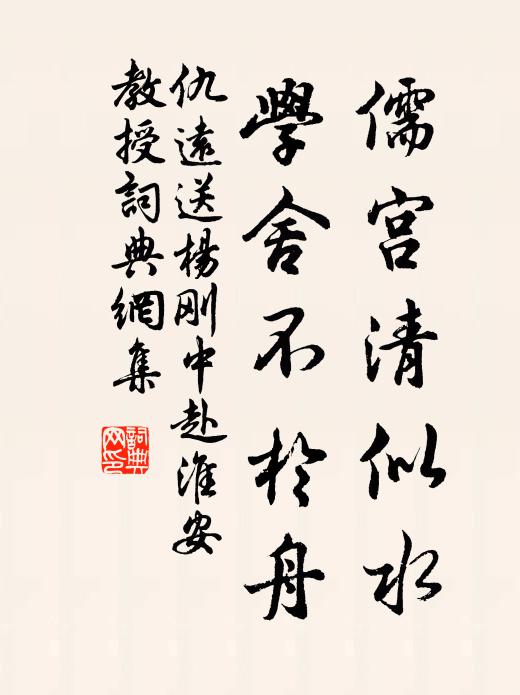 儒宫清似水
學舍不於舟
仇遠送楊刚中赴淮安
教授詞典網集
詞典
网印